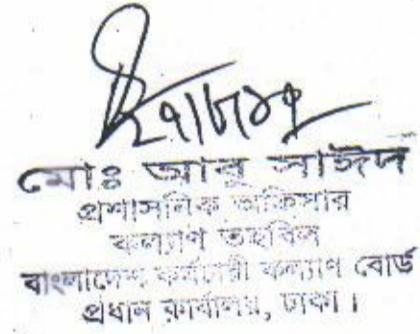 মোঃ আবু সাঈদ
প্রশাসনিক অফিসার
কল্যাণ তহবিল
বাংলাদেশ কর্মচারী কল্যাণ বোর্ড
প্রধান কার্যালয়, ঢাকা।